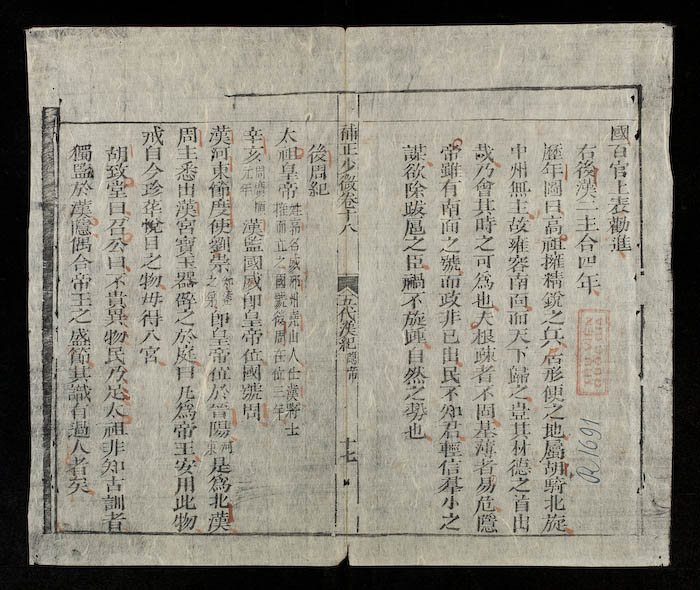 國百官上表勸進
右後漢二主合四年
歷年圖曰高祖擁精銳之兵居形便之地屬胡騎北旋
中州無主故雍容南面而天下歸之豈其材德之首出
哉乃會其時之可為也夫根疎者不固基薄者易危隱
帝雖有南面之號而政非已出民不知君輕信羣小之
謀欲除跋扈之臣禍不旋踵自然之勢也
補正少微卷十八 五代漢紀 隱帝 十七
後周紀
太祖皇帝 姓郭名威邢州堯山人仕漢將士
推而立之國號後周在位三年
辛亥 周廣順
元年 漢監國威即皇帝位國號周
漢河東節度使劉崇 即皇帝位於晉陽 是為北漢
周主悉出漢宮寶玉器碎之於庭曰凡為帝王安用此物
戒自今珍華悅目之物毋得入宮
胡致堂曰召公曰不貴異物民乃足太祖非知古訓者
獨監於漢隱偶合帝王之盛節其識有過人者矣